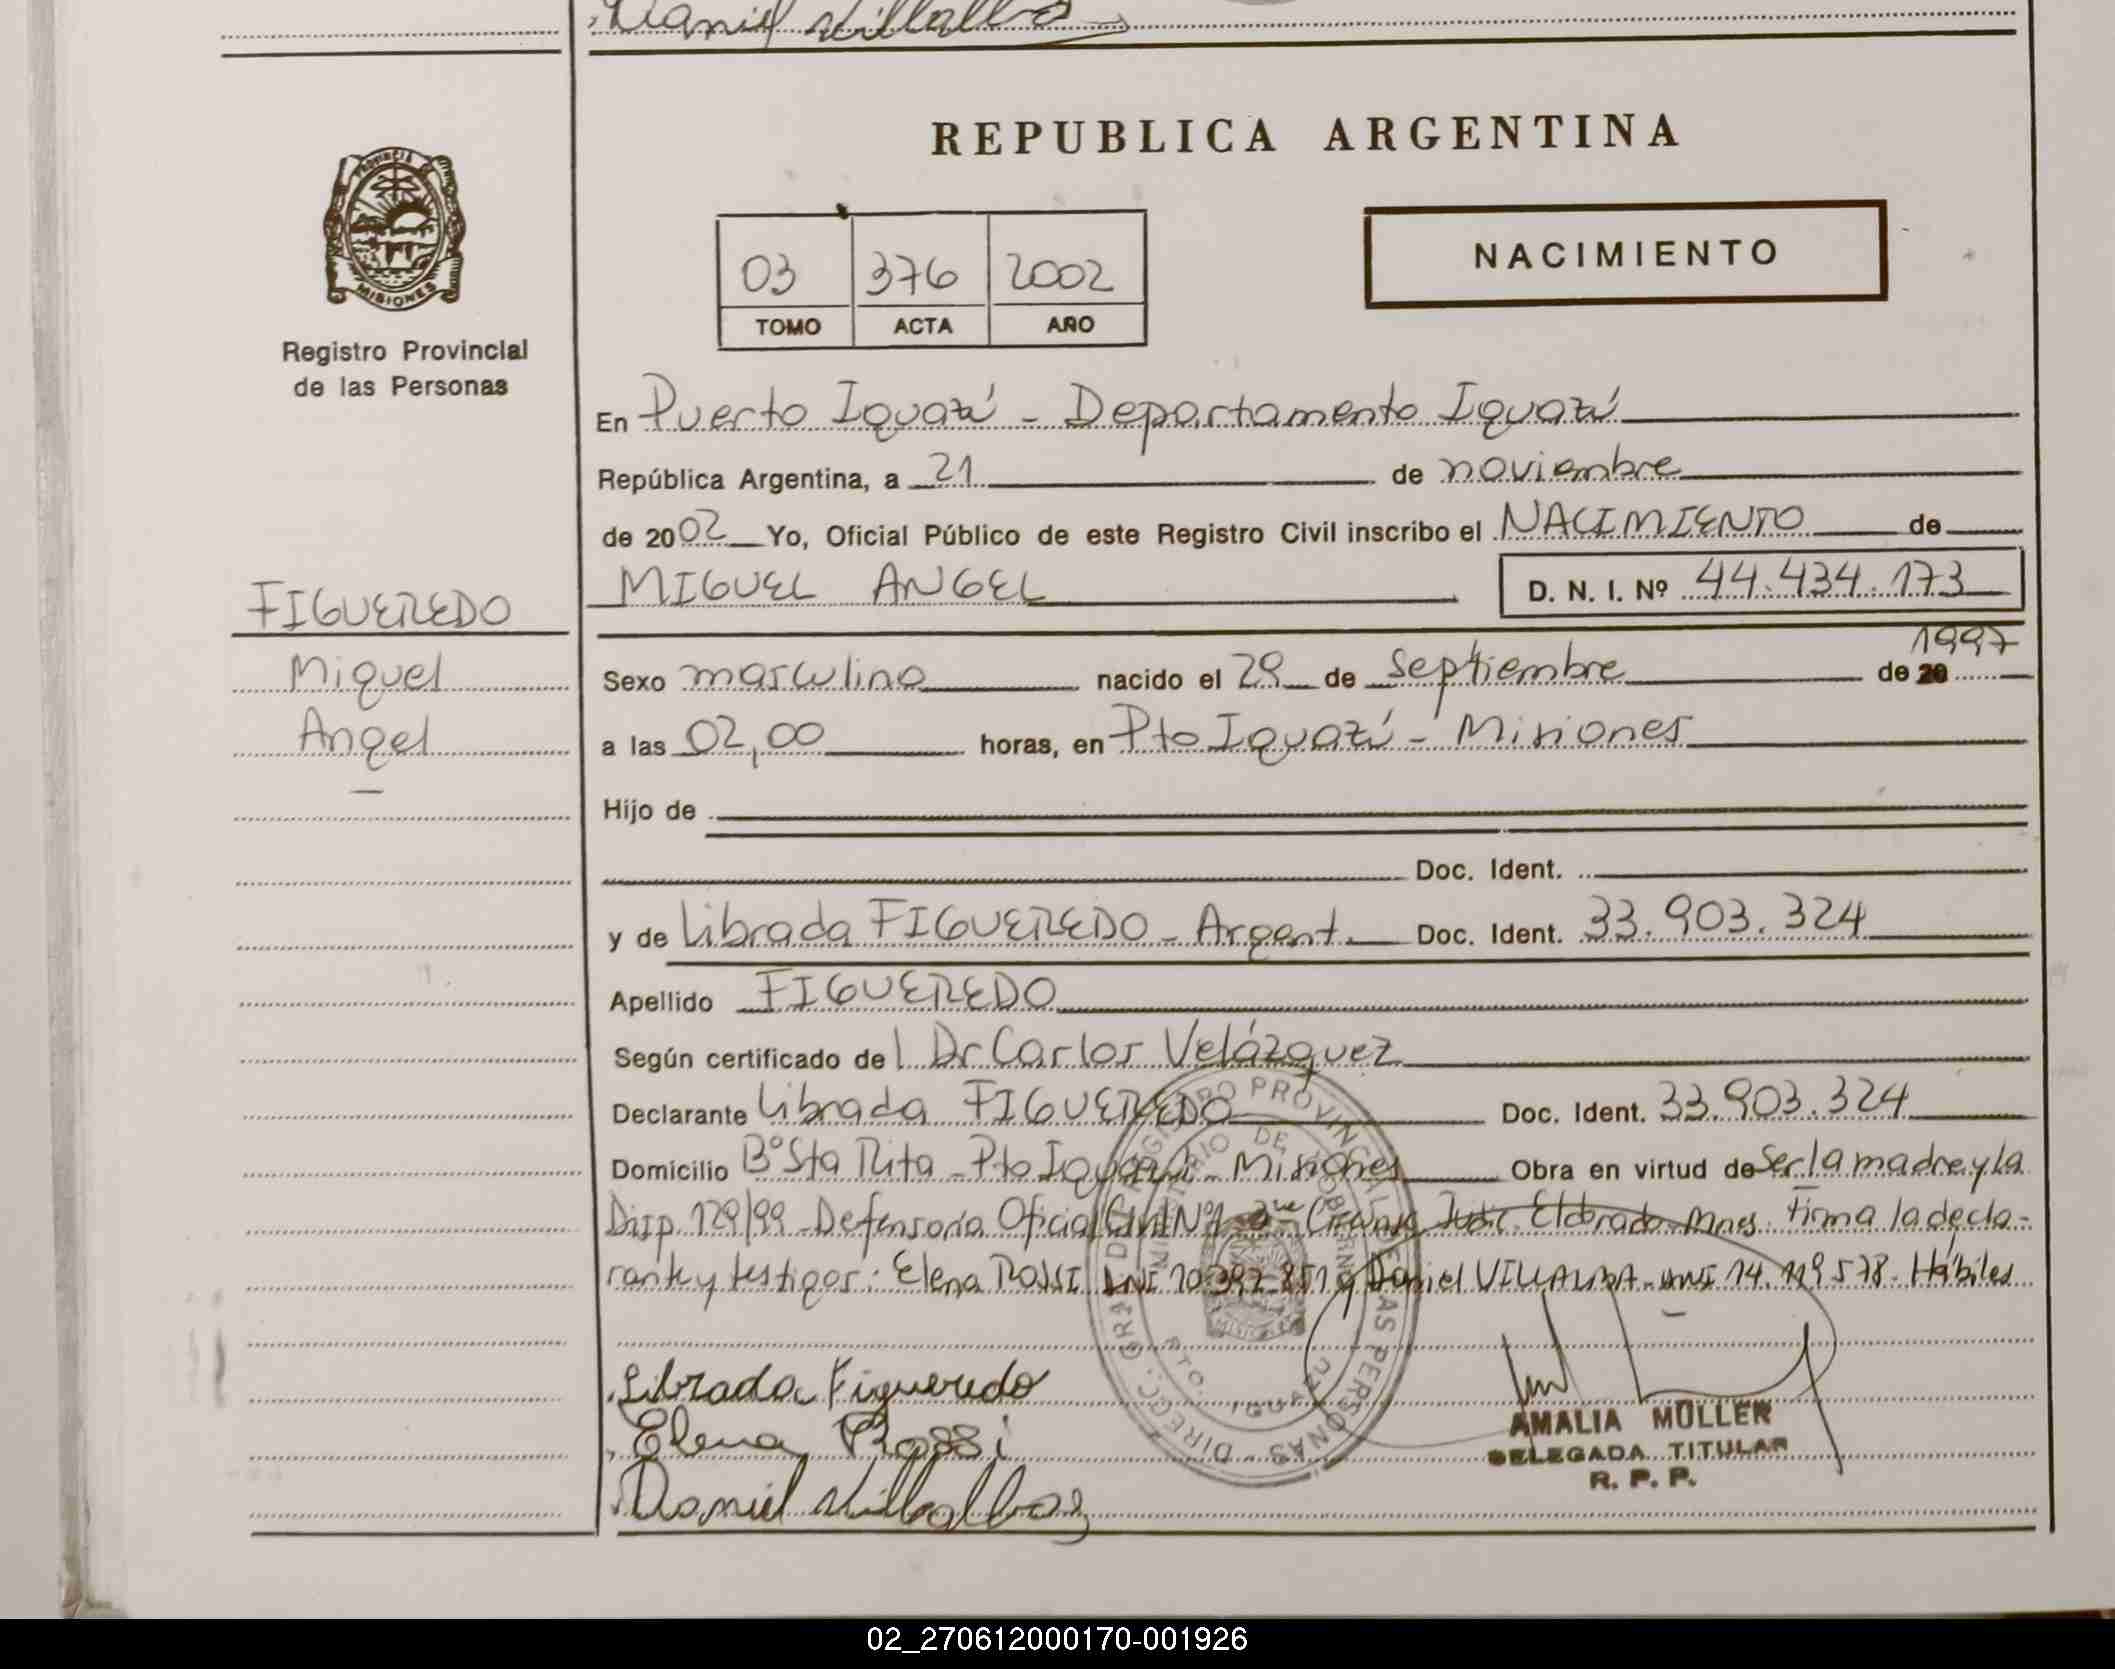 Daniel Villalba
PROVINCIA
MISIONES
Registro Provincial
de las Personas
REPUBLICA ARGENTINA
03 376 2002
TOMO ACTA AÑO
NACIMIENTO
En Puerto Iguazú - Departamento Iguazú
República Argentina, a 21 de noviembre
de 2002 Yo, Oficial Público de este Registro Civil inscribo el NACIMIENTO de
MIGUEL ANGEL D. N. I. Nº 44.434.173
FIGUEREDO
Miguel
Angel
1997
Sexo masculino nacido el 29 de septiembre de 20
a las 02,00 horas, en Pto Iguazú - Misiones
Hijo de
Doc. Ident.
y de Librada FIGUEREDO - Argent. Doc. Ident. 33.903.324
Apellido FIGUEREDO
Según certificado del Dr Carlos Velázquez
Declarante Librada FIGUEREDO Doc. Ident. 33.903.324
Domicilio Bº Sta Rita - Pto Iguazú - Misiones Obra en virtud de Ser la madre y la
Disp. 129/99 - Defensoría Oficial Civil Nº1 Judic. Eldorado - Mnes. Firma la decla-
rante y testigos: Elena ROSSI DNI 10.392.851 y Daniel VILLALBA - DNI 14.119.578 - Hábiles
Librada Figueredo
Elena Rossi
Daniel Villalba
DIRECC. GRAL. DEL REGISTRO PROVINCIAL DE LAS PERSONAS
MINISTERIO DE GOBIERNO
PTO. IGUAZU
AMALIA MÜLLER
DELEGADA TITULAR
R. P. P.
02_270612000170-001926